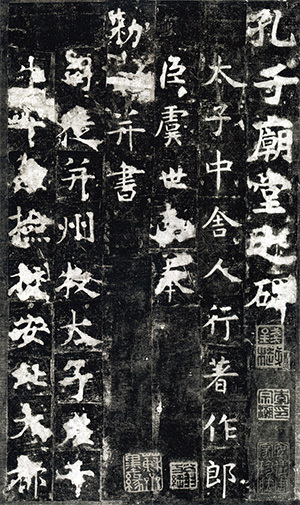 孔子廟堂之碑
太子中舍人行著作郎
臣虞世南奉
勅撰并書
司徒并州牧太子左千
牛率兼檢校安北大都